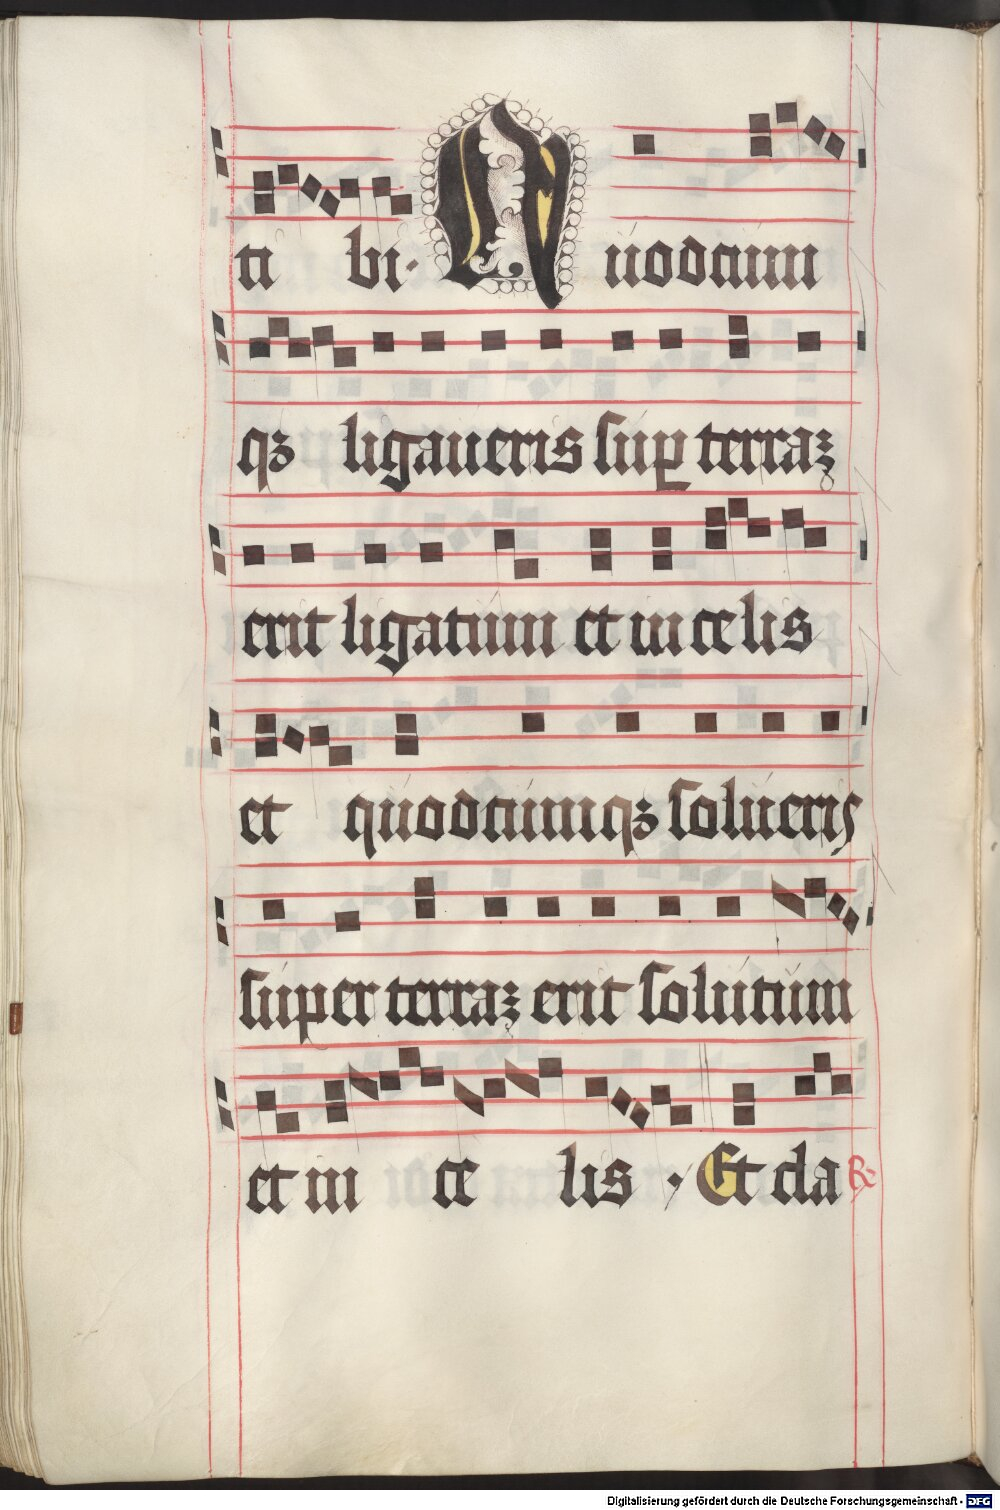 ti bi· Quodcum
qꝫ ligaueris suꝑ terraꝫ
erit ligatum et in celis
et quodcumqꝫ solueris
super terraꝫ erit solutum
et in ce lis · Et cla ℟
Digitalisierung gefördert durch die Deutsche Forschungsgemeinschaft - DFG